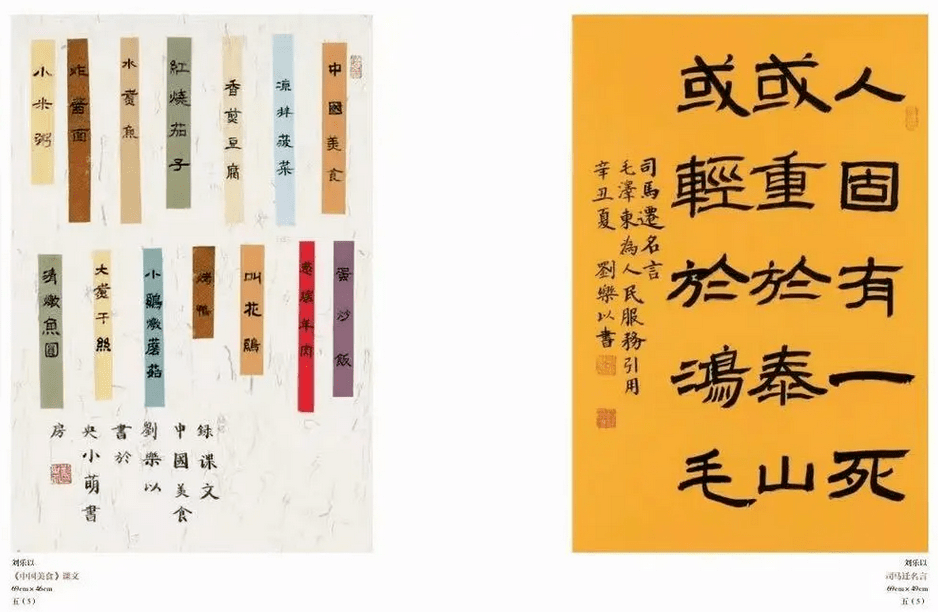 中國美食
凉拌菠菜
香煎豆腐
紅燒茄子
水煮魚
炸醬面
小米粥
蛋炒飯
葱爆羊肉
叫花鷄
烤鴨
小鷄燉蘑菇
大煮干絲
清燉魚圓
録课文
中國美食
劉樂以
書於
央小萌書
房
刘乐以
《中国美食》课文
69cm×46cm
五(5)
人固有一死
或重於泰山
或輕於鴻毛
司馬遷名言
毛澤東為人民服務引用
辛丑夏 劉樂以書
刘乐以
司马迁名言
69cm×49cm
五(5)